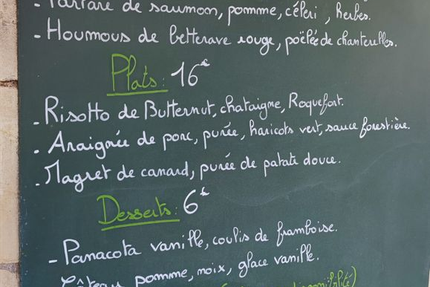 - Tartare de saumon, pomme, céleri, herbes.
- Houmous de betterave rouge, poêlée de chanterelles.
Plats : 16€
- Risotto de Butternut, chataigne, Roquefort.
- Araignée de porc, purée, haricots vert, sauce forestière.
- Magret de canard, purée de patate douce.
Desserts : 6€
- Panacota vanille, coulis de framboise.
- Gâteau pomme, noix, glace vanille.